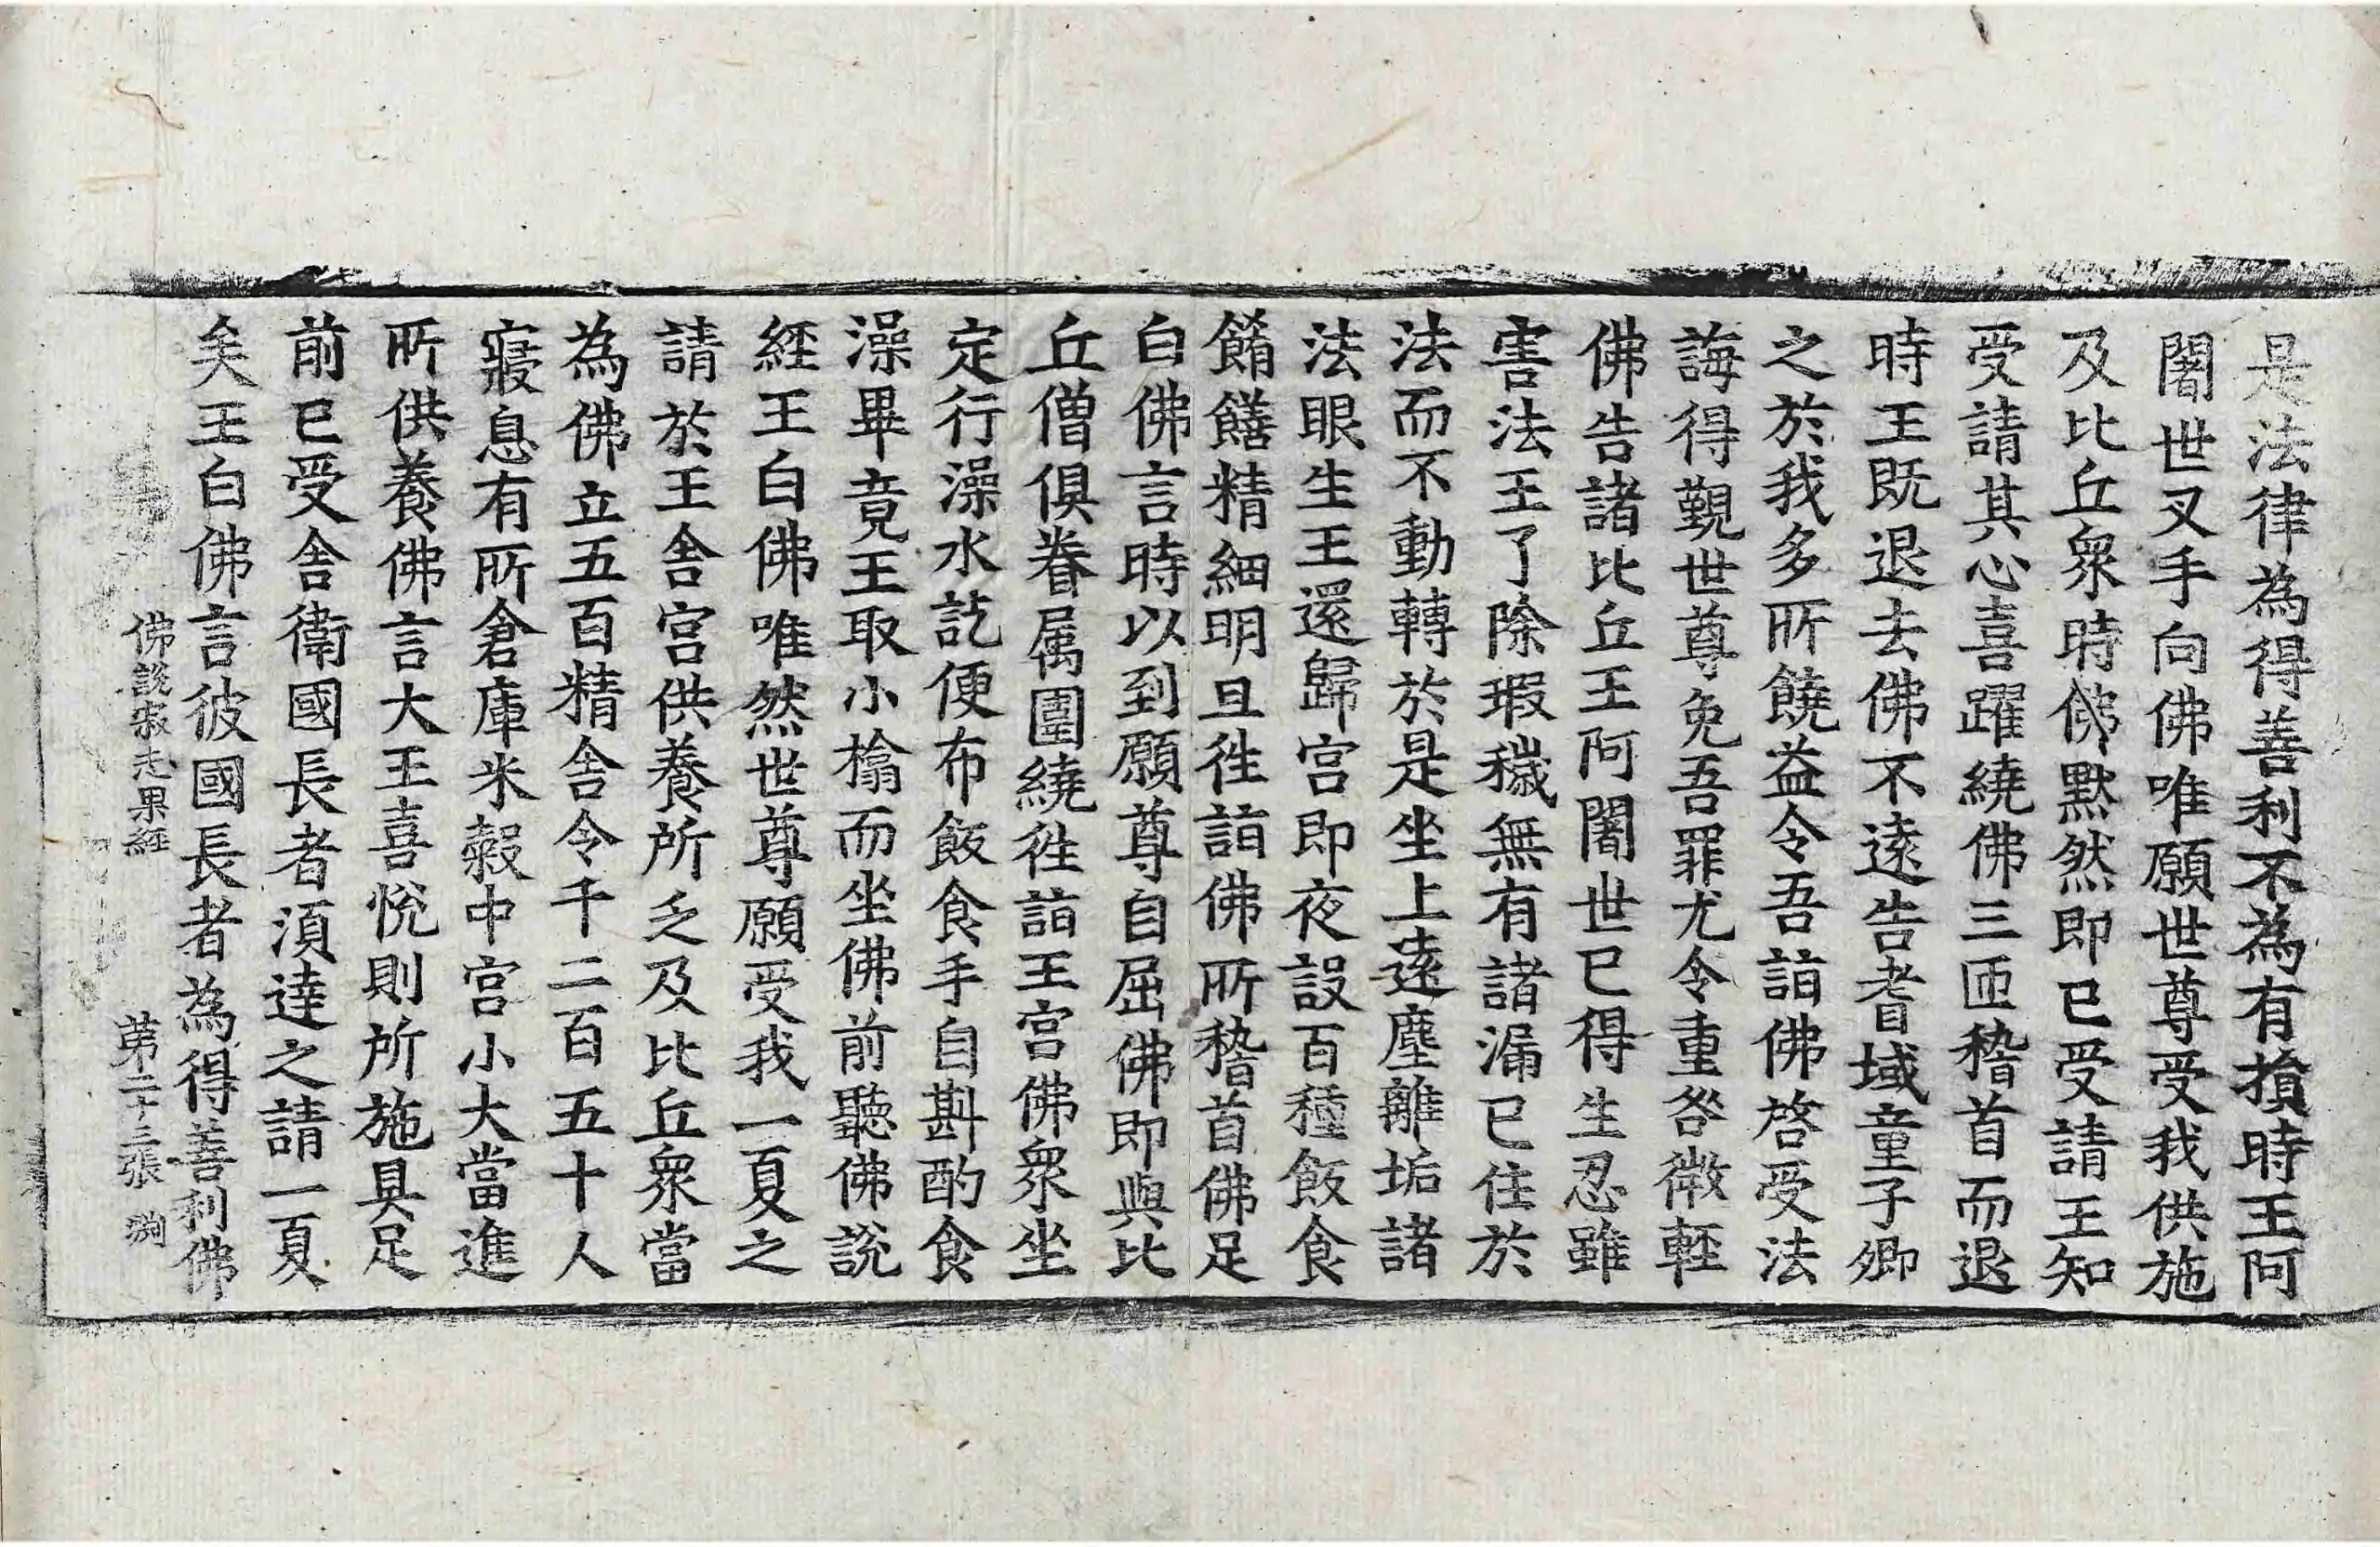 是法律為得善利不為有損時王阿
闍世叉手向佛唯願世尊受我供施
及比丘衆時佛默然即已受請王知
受請其心喜躍繞佛三匝稽首而退
時王既退去佛不遠告耆域童子卿
之於我多所饒益令吾詣佛啓受法
誨得覲世尊免吾罪尤令重咎微輕
佛告諸比丘王阿闍世已得生忍雖
害法王了除瑕穢無有諸漏已住於
法而不動轉於是坐上遠塵離垢諸
法眼生王還歸宮即夜設百種飯食
餚饍精細明旦往詣佛所稽首佛足
白佛言時以到願尊自屈佛即與比
丘僧俱眷属圍繞往詣王宮佛衆坐
定行澡水訖便布飯食手自斟酌食
澡畢竟王取小㯓而坐佛前聽佛說
経王白佛唯然世尊願受我一夏之
請於王舍宮供養所乏及比丘衆當
為佛立五百精舍令千二百五十人
寢息有所倉庫米穀中宮小大當進
所供養佛言大王喜悅則所施具足
前已受舍衛國長者須達之請一夏
矣王白佛言彼國長者為得善利佛
佛說寂志果経 第二十三張 淵